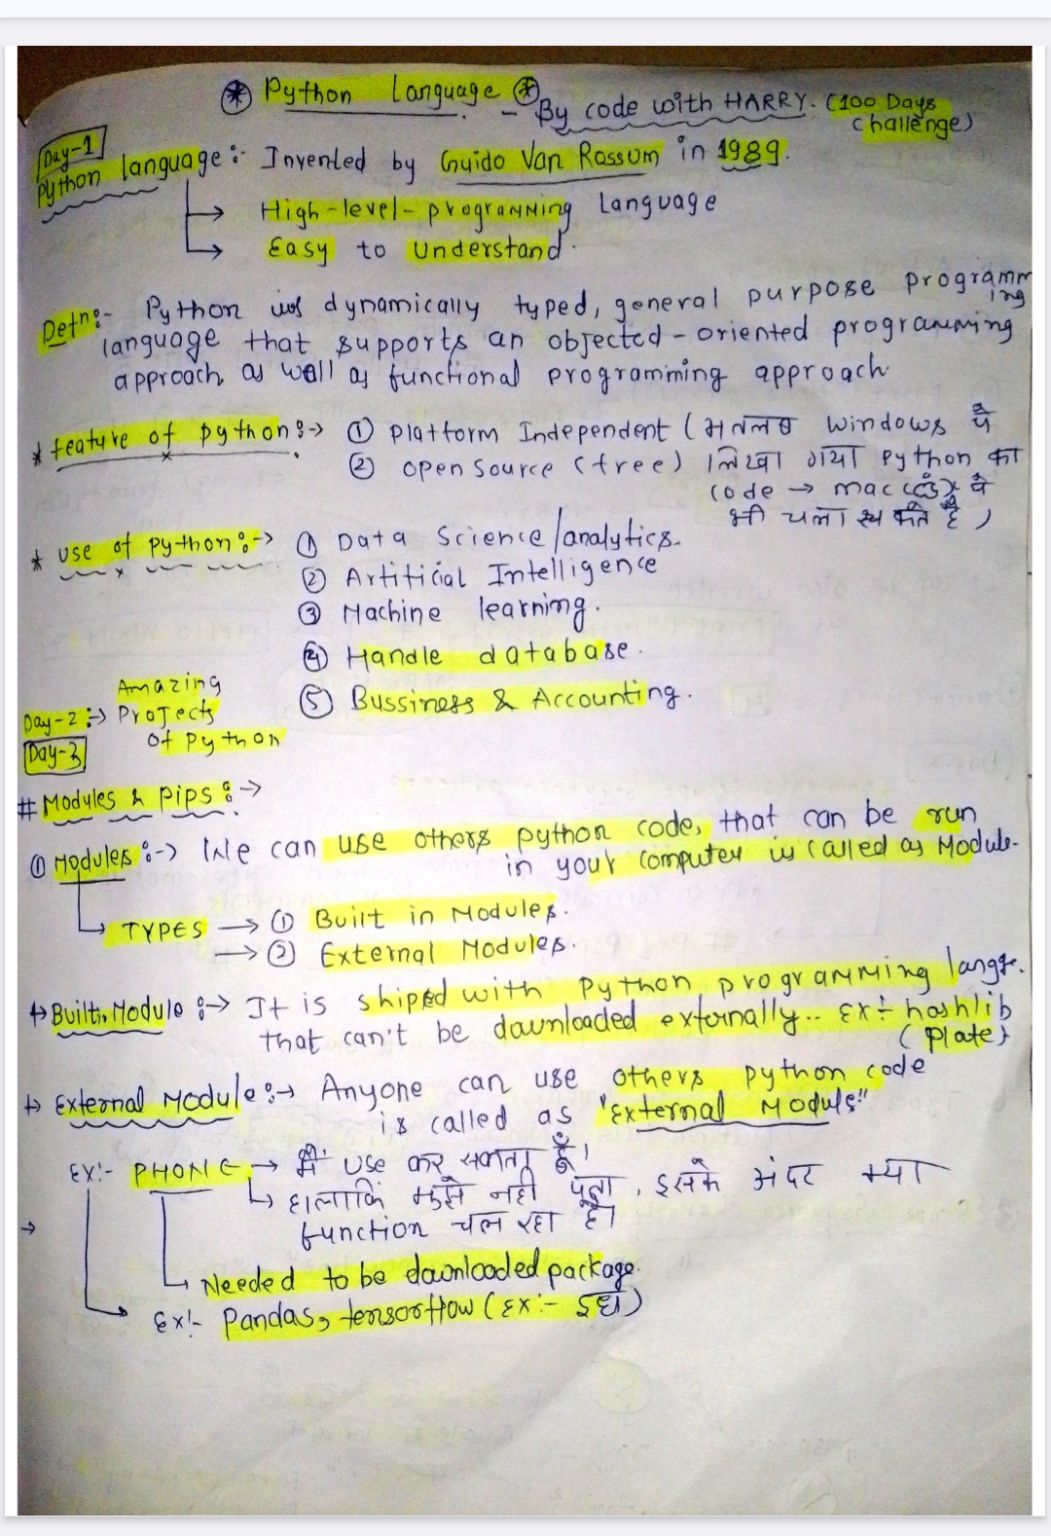 * Python Language *
- By code with HARRY. (100 Days challenge)
Day-1
Python language :- Invented by Guido Van Rossum in 1989.
→ High-level-programming Language
→ Easy to understand.
Defn:- Python is dynamically typed, general purpose programming
language that supports an objected-oriented programming
approach as well as functional programming approach
* feature of python :-> ① Platform Independent (मतलब windows पे
② open source (free) लिखा गया python का
code → mac पे
भी चला सकते है)
* use of python :-> ① Data Science/analytics.
② Artificial Intelligence
③ Machine learning.
④ Handle database.
⑤ Bussiness & Accounting.
Day-2 :-> Amazing
Projects
of python
Day-3
# Modules & pips :->
① Modules :-> We can use others python code, that can be run
in your computer is called as Module.
TYPES → ① Built in Modules.
→ ② External Modules.
Built in Module :-> It is shiped with Python programming langge.
that can't be downloaded externally.. Ex :- hashlib
(plate)
External Module :-> Anyone can use others python code
is called as "External Module"
Ex:- PHONE → मैं use कर सकता हूँ।
↳ हालाकि मुझे नही पता, इसके अंदर क्या
function चल रहा है।
→
Needed to be downlooded package.
Ex:- Pandas, tensorflow (Ex:-